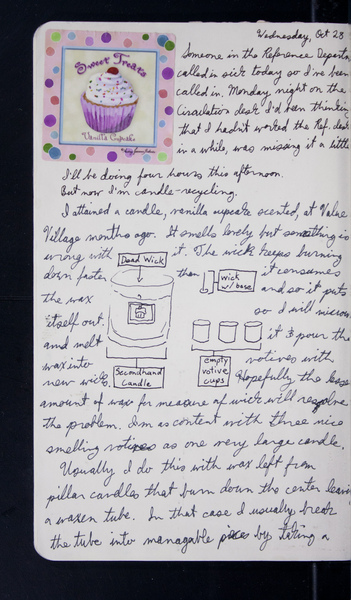 Wednesday, Oct 28
Sweet Treats
Vanilla Cupcake
Someone in the Reference Departm
called in sick today so I've been
called in. Monday night on the
Circulation desk I'd been thinking
that I hadn't worked the Ref. desk
in a while, was missing it a little
I'll be doing four hours this afternoon.
But now I'm candle-recycling.
I attained a candle, vanilla cupcake scented, at Value
Village months ago. It smells lovely but something is
wrong with it. The wick keeps burning
Dead Wick
down faster than it consumes
wick w/base
the wax and so it puts
itself out. so I will microw
and melt it & pour the
wax into votives with
Secondhand Candle
empty votive cups
new wicks. Hopefully the less
amount of wax for measure of wick will resolve
the problem. I'm as content with three nice
smelling votives as one very large candle.
Usually I do this with wax left from
pillar candles that burn down the center leavin
a waxen tube. In that case I usually break
the tube into managable pices by taking a